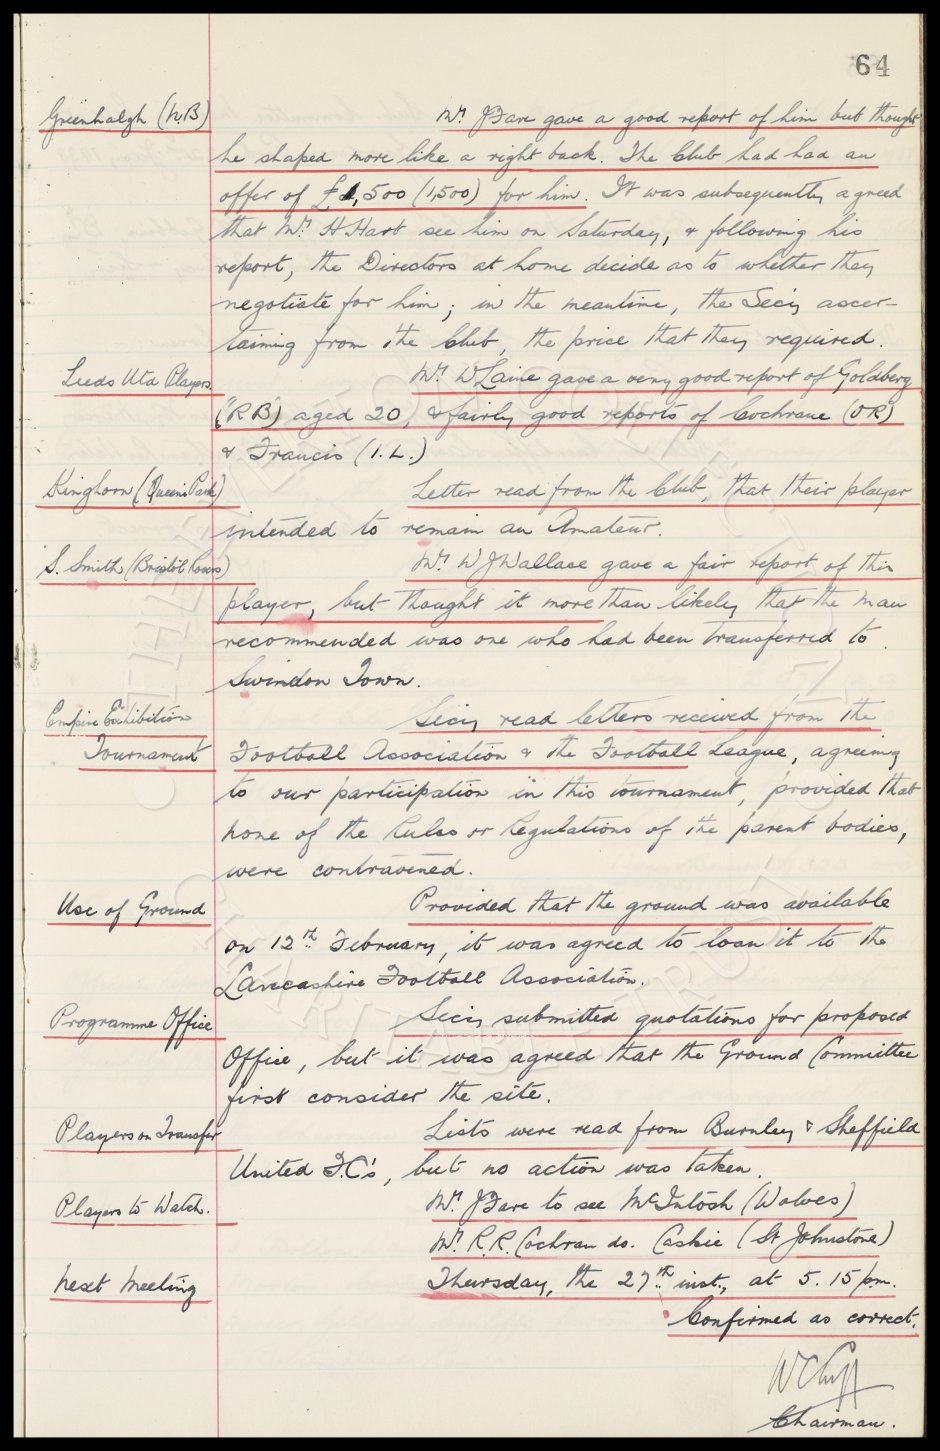 64
Greenhalgh (N.B) Mr. J Fare gave a good report of him but thought
he shaped more like a right back. The Club had had an
offer of £1,500 (1,500) for him. It was subsequently agreed
that Mr. H Hart see him on Saturday, & following his
report, the Directors at home decide as to whether they
negotiate for him; in the meantime, the Secy ascer-
taining from the Club, the price that they required.
Leeds Utd Players. Mr. W Laine gave a very good report of Goldberg
("RB") aged 20, & fairly good reports of Cochrane (OR)
& Francis (I.L.)
Kinghorn (Queens Park) Letter read from the Club, that their player
intended to remain an Amateur.
S. Smith (Bristol Rovers) Mr. W J Wallace gave a fair report of this
player, but thought it more than likely that the man
recommended was one who had been transferred to
Swindon Town.
Empire Exhibition Secy read letters received from the
Tournament Football Association & the Football League, agreeing
to our participation in this tournament, provided that
none of the Rules or Regulations of the parent bodies,
were contravened.
Use of Ground Provided that the ground was available
on 12th February, it was agreed to loan it to the
Lancashire Football Association.
Programme Office Secy submitted quotations for proposed
Office, but it was agreed that the Ground Committee
first consider the site.
Players on Transfer Lists were read from Burnley & Sheffield
United F.C's, but no action was taken.
Players to Watch. Mr. J Fare to see McIntosh (Wolves)
Mr. R.R. Cochran do. Caskie (St Johnstone)
Next Meeting Thursday, the 27th inst., at 5.15 p.m.
Confirmed as correct.
W C Cuff
Chairman.